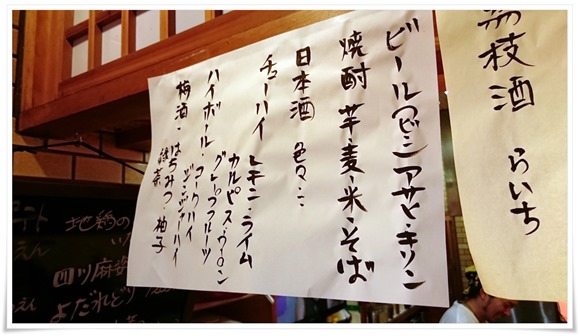 茘枝酒 らいち
ビール(エビス アサヒ・キリン
焼酎 芋・麦・米・そば
日本酒 色々ここ
チューハイ レモン・ライム
カルピス・ウーロン
グレープフルーツ
ハイボール・コークハイ
ジンジャーハイ
梅酒・はちみつ・柚子
緑茶
地鶏の
四川麻婆
よだれどり